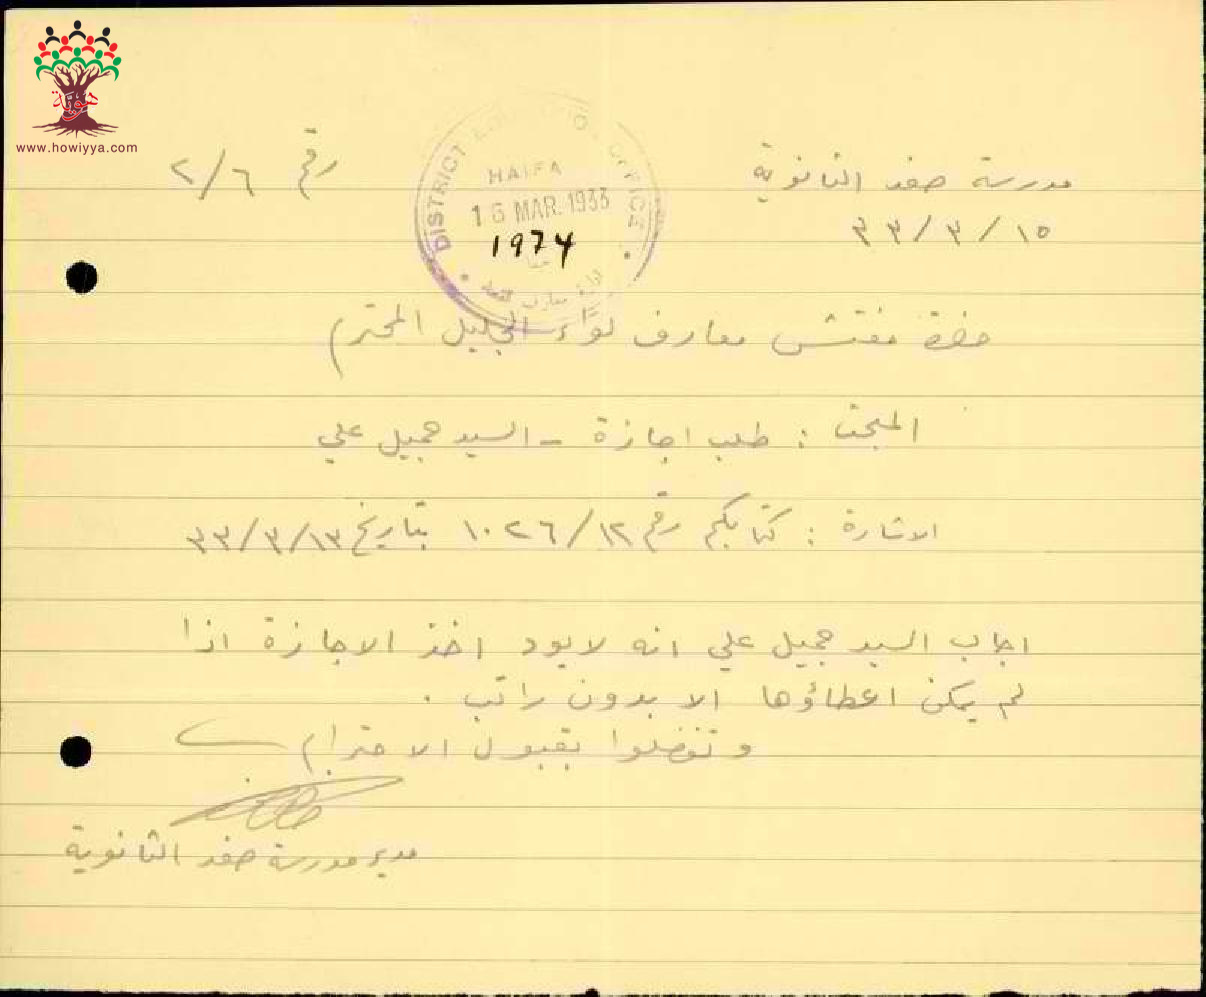 هوية
www.howiyya.com
مدرسة صفد الثانوية
رقم ٦/٢
١٥/٣/٣٣
DISTRICT EDUCATION OFFICE
HAIFA
16 MAR. 1933
1974
ادارة معارف
حضرة مفتش معارف لواء الجليل المحترم
المبحث : طلب اجازة - السيد جميل علي
الاشارة : كتابكم رقم ١٠٢٦/١٢ بتاريخ ١٣/٣/٣٣
اجاب السيد جميل علي انه لا يود اخذ الاجازة اذا
لم يمكن اعطاؤها الا بدون راتب .
وتفضلوا بقبول الاحترام
مدير مدرسة صفد الثانوية